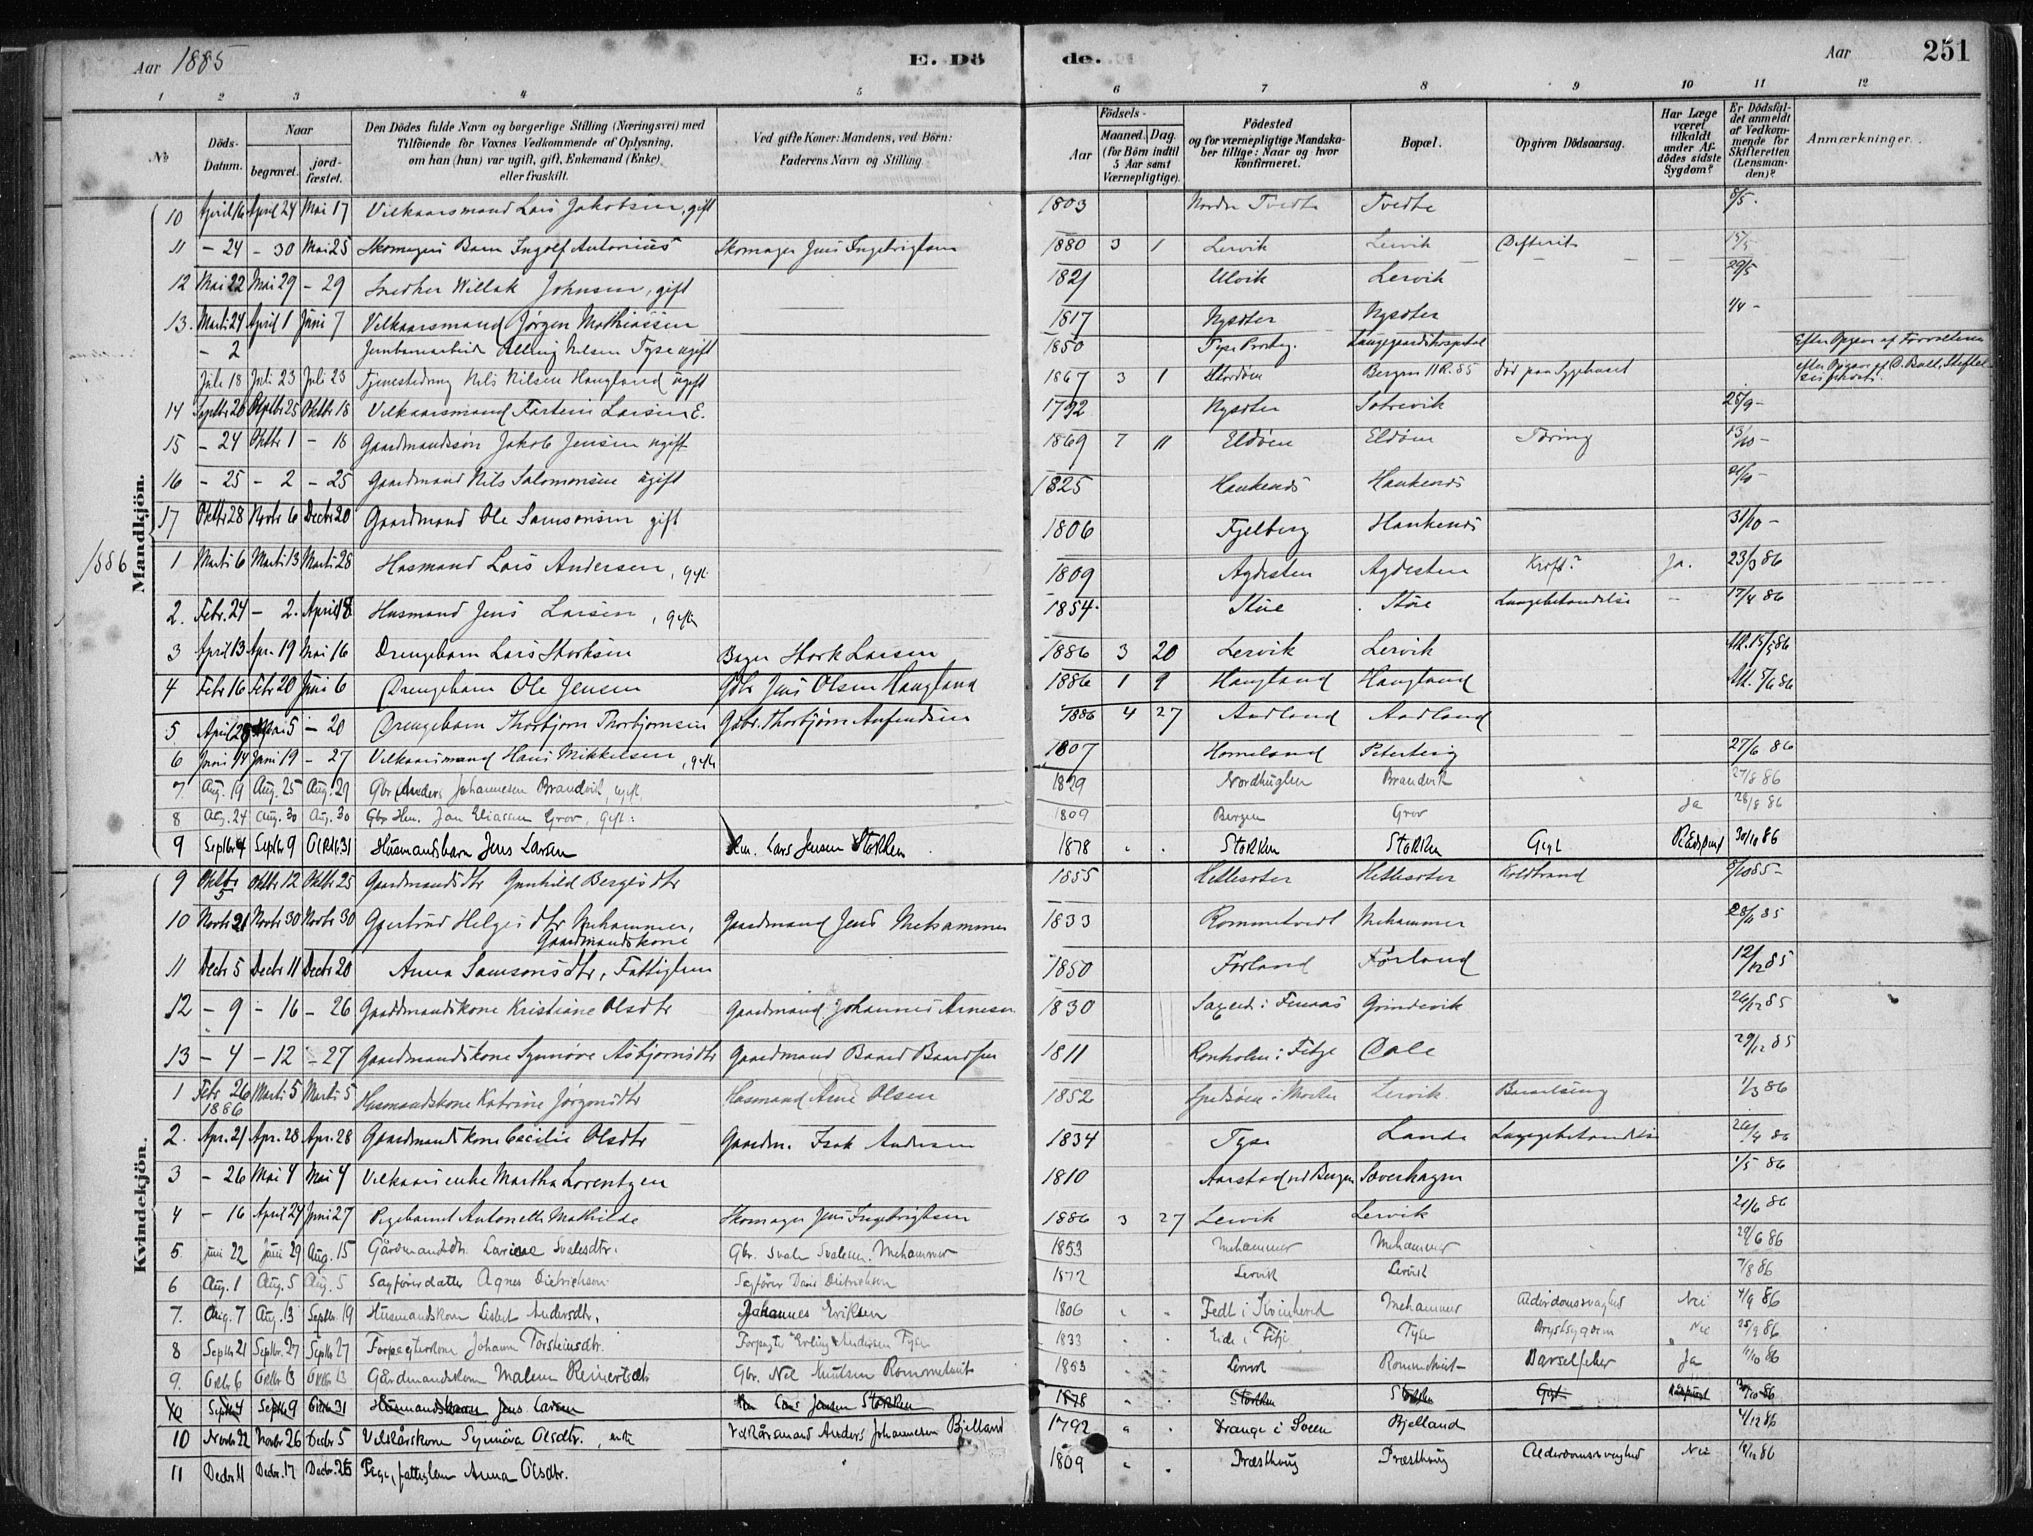 Aar 1885 E. Dö de. Aar 251
1 2 3 4 5 6 7 8 9 10 11 12
No Döds-Datum. Naar begravet. jord-fæstet. Den Dödes fulde Navn og borgerlige Stilling (Næringsvei) med Tilföiende for Voxnes Vedkommende af Oplysning, om han (hun) var ugift, gift, Enkemand (Enke) eller fraskilt. Ved gifte Koner: Mandens, ved Börn: Faderens Navn og Stilling. Aar Födsels- Maaned. Dag. (for Börn indtil 5 Aar samt Værnepligtige). Födested og for værnepligtige Mandskaber tillige: Naar og hvor konfirmeret. Bopæl. Opgiven Dödsaarsag. Har Læge været tilkaldt under Afdödes sidste Sygdom? Er Dödsfaldet anmeldt af Vedkommende for Skifteretten (Lensmanden)? Anmærkninger.
Mandkjön.
10 April 16 April 24 Mai 17 Vilkaarsmand Lars Jakobsen, gift 1803 Nordre Tvedte Tvedte 8/5-
11 - 24 - 30 Mai 25 Skomagers Barn Ingolf Antonius Skomager Jens Ingebrigtsen 1880 3 1 Lervik Lervik Difterit 15/5
12 Mai 22 Mai 29 - 29 Snedker Willak Johnsen, gift 1821 Ulvik Lervik 29/5
13. Marti 24 April 1 Juni 7 Vilkaarsmand Jørgen Mathiassen 1817 Nysæter Nysæter 1/4 -
- 2 Nilsen Tyse ugift 1850 Tyse Lungegaardshospital Efter Opgave af
Juli 18 Juli 23 Juli 23 Tjenestedreng Nils Nilsen Haugland ugift 1867 3 1 Stordøen Bergen 85 død paa Sygehuset efter Opgave af
14 Septbr 20 Septbr 25 Oktbr 18 Vilkaarsmand Larsen E. 1792 Nysæter 25/9-
15 - 24 Oktbr 1 - 18 Gaardmandssøn Jakob Jensen ugift 1869 7 11 Eldøen Eldøen Tæring 13/10-
16 - 25 - 2 - 25 Gaardmand Nils Salomonsen ugift 1825 Haukenæs Haukenæs
17 Oktbr 28 Novbr 6 Decbr 20 Gaardmand Ole Samsonsen gift 1806 Fjelberg Haukenæs 31/10-
1886 1 Marti 6 Marti 13 Marti 28 Husmand Lars Andersen, gift 1809 Agdesten Agdesten Kræft? Ja. 23/3 86
2. Febr. 24 - 2. April 18 Husmand Jens Larsen, gift 1854. Støe Støe Lungebetændelse - 17/4 86
3 April 13 Apr. 19 Mai 16 Drengebarn Lars Storksen Bager Stork Larsen 1886 3 20 Lervik Lervik 15/5 86
4 Febr 16 Febr 20 Juni 6 Drengebarn Ole Jensen Gbr Jens Olsen Haugland 1886 1 9 Haugland Haugland 5/6 86
5 April 28 Mai 5 - 20 Drengebarn Thorbjørn Thorbjørnsen Gdbr. Thorbjørn 1886 4 27 Aadland Aadland
6 Juni 14 Juni 19 - 27 Vilkaarsmand Hans Mikkelsen, gift 1807 Homeland Petersteig 27/6 86
7 Aug. 19 Aug. 25 Aug. 29 Gbr Anders Johannesen Brandvik, 1829 Nordhuglen Brandvik 27/8 86
8 Aug. 24 Aug. 30 Aug. 30 Gbr. Jan Eliassen Grov, gift: 1809 Bergen Grov Ja 28/8 86
9 Septbr 4 Septbr 9 Oktbr. 31 Husmandsbarn Jens Larsen Hm. Lars Jensen Stokken 1878 " . Stokken Stokken Gigt 30/10 86
Kvindekjön.
9 Oktbr 5 Oktbr 12 Oktbr 25 Gaardmandsdtr Gunhild Bergesdtr 1855 Hettesæter Hettesæter Koldbrand
10 Novbr 21 Novbr 30 Novbr 30 Gjertrud Helgesdtr Mehammer, Gaardmandskone Gaardmand Jens Mehammer 1833 Rommetvedt Mehammer 28/11 85
11 Decbr 5 Decbr 11 Decbr 20 Anna Samsonsdtr, Fattiglem 1850 Førland Førland 12/12 85
12 - 9 - 16 - 26 Gaardmandskone Kristiane Olsdtr Gaardmand Johannes Arnesen 1830 i Finaas Grindevik 26/12 85
13 - 4 - 12 - 27 Gaardmandskone Synnøve Asbjørnsdtr Gaardmand Baard Baardsen 1811 i Fitje Dale 29/12 85
1 Febr 26 1886 Marti 5 Marti 5 Husmandskone Katrine Jørgensdtr Husmand Arne Olsen 1852 Lervik Barselseng 1/3 86
2. Apr. 21 Apr. 28 Apr. 28 Gaardmandskone Cecilie Olsdtr Gaardm. Isak Andersen 1834 Tyse Landa Lungebetændelse 26/4 86
3 - 26 Mai 4 Mai 4 Vilkaarsenke Martha Lorentzen 1810 Aarstad ved Bergen Sæverhagen 1/5 86
4 - 16 April 24 Juni 27 Pigebarnet Antonette Mathilde Skomager Jens Ingebrigtsen 1886 3 27 Lervik Lervik 21/6 86
5 Juni 22 Juni 29 Aug. 15 Gårdmandsdtr. Larine Svalesdtr. Gbr. Svale Svalesen Mehammer 1853 Mehammer Mehammer 29/6 86
6 Aug. 1 Aug. 5 Aug. 5 Sagførerdatter Agnes Dietrichson Sagfører Dietrichson 1872 Lervik Lervik 7/8 86
7. Aug. 7 Aug. 13 Septbr. 19 Husmandskone Lisbet Andersdtr. Johannes Eriksen 1806 " " Fedt i Kvinherred Mehammer Alderdomssvaghed Nei 4/9 86
8 Septbr 21 Septbr. 27 Septbr 27 Forpagterkone Johanne Torsteinsdtr. Forpagter Erling Andersen Tyse 1833 Eide i Fitje Tyse Brystsygdom Nei 25/9 86
9. Oktbr 6 Oktbr 13 Oktbr 13 Gårdmandskone Malene Reinertsdtr Gbr. Nils Knutsen Rommetveit 1853 Lervik Rommetveit Barselfeber Ja 11/10 86
10 Septbr 4 Septbr 9 Oktbr 31 Husmandsbarn Jens Larsen Hm Lars Jensen Stokken 1878 " Stokken Stokken Gigt 30/10 86
10 Novbr 22 Novbr 26 Decbr 5 Vilkårskone Synnøva Olsdtr., enke Vilkårsmand Anders Johannesen Bjelland 1792 " . Drange i Soeen Bjelland 4/12 86
11 Decbr 11 Decbr. 17 Decbr. 26 Pige, fattiglem Anna Olsdtr. 1809 " . Præsthoug Præsthoug Alderdomssvaghed Nei 18/12 86